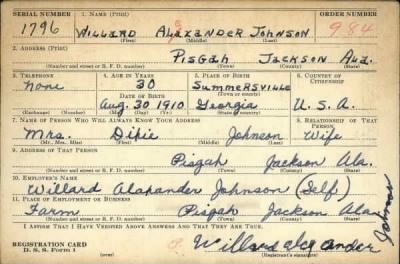 SERIAL NUMBER 1. NAME (Print) ORDER NUMBER
1796 WILLARD ALEXANDER JOHNSON 984
(First) (Middle) (Last)
2. ADDRESS (Print)
PISGAH JACKSON ALA.
(Number and street or R. F. D. number) (Town) (County) (State)
3. TELEPHONE 4. AGE IN YEARS 5. PLACE OF BIRTH 6. COUNTRY OF CITIZENSHIP
None 30 SUMMERSVILLE
DATE OF BIRTH (Town or county)
Aug. 30 1910 Georgia U. S. A.
(Exchange) (Number) (Mo.) (Day) (Yr.) (State or country)
7. NAME OF PERSON WHO WILL ALWAYS KNOW YOUR ADDRESS 8. RELATIONSHIP OF THAT PERSON
Mrs. Dixie Johnson Wife
(Mr., Mrs., Miss) (First) (Middle) (Last)
9. ADDRESS OF THAT PERSON
Pisgah Jackson Ala.
(Number and street or R. F. D. number) (Town) (County) (State)
10. EMPLOYER'S NAME
Willard Alaxander Johnson (Self)
11. PLACE OF EMPLOYMENT OR BUSINESS
Farm Pisgah Jackson Ala
(Number and street or R. F. D. number) (Town) (County) (State)
I AFFIRM THAT I HAVE VERIFIED ABOVE ANSWERS AND THAT THEY ARE TRUE.
REGISTRATION CARD
D. S. S. Form 1
Willard alexander Johnson
(Registrant's signature)